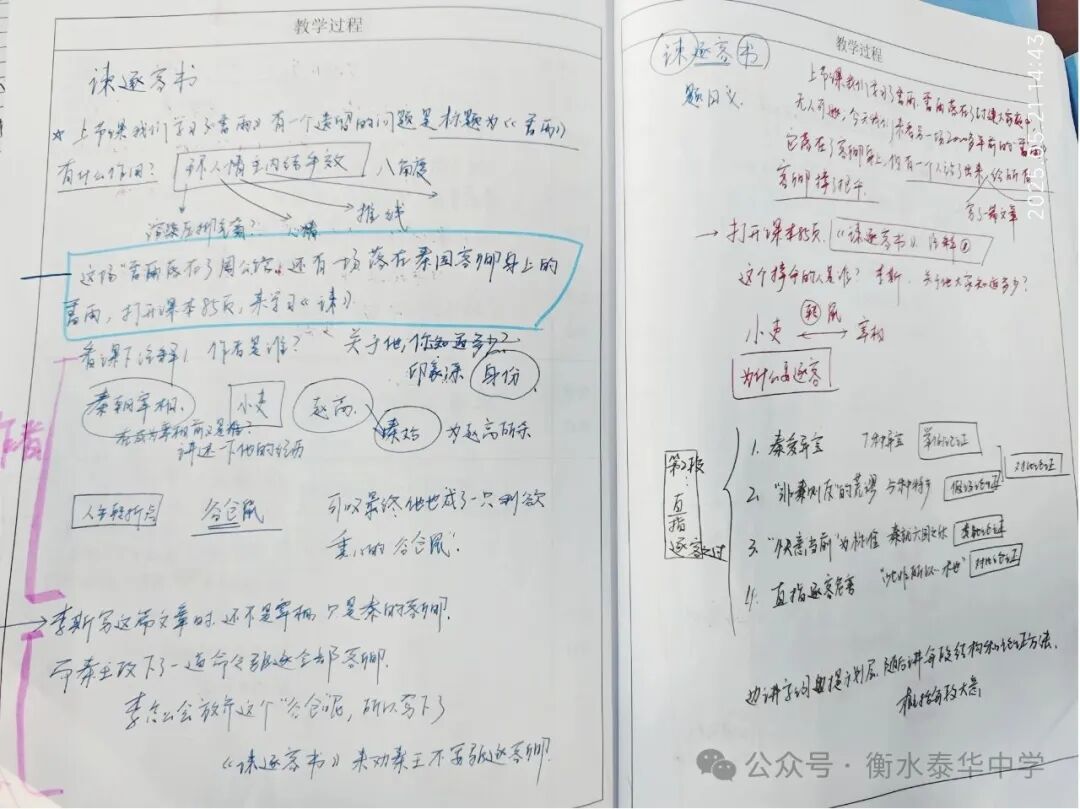 教学过程
谏逐客书
* 上节课我们学习了《雷雨》有一个遗留的问题是标题为《雷雨》
有什么作用? 环人情主内结手效 八角度
渲染压抑氛围? 心情 推线
这场"雷雨落在了周公馆,还有一场落在秦国客卿身上的
雷雨,打开课本85页,来学习《谏》.
看课下注释1 作者是谁? 关于他,你知道多少?
印象深 身份
秦朝宰相. 小吏 赵高. 秦始 为赵高所杀
在成为宰相前又是谁?
讲述一下他的经历
人生转折点 谷仓鼠 可以最终他也成了一只利欲
熏心的"谷仓鼠".
作者
李斯写这篇文章时,还不是宰相,只是秦的客卿.
而秦王政下了一道命令驱逐全部客卿.
李怎么会放弃这个"谷仓呢,所以写下了
《谏逐客书》来劝秦王不要驱逐客卿.
教学过程
谏逐客书
题目义.
上节课我们学习了雷雨.雷雨落在了
无人幸免,今天我们来看另一场2000多年前的"雷雨
它落在了客卿身上,但有一个人站了出来,给所有
客卿 择了根本.
写了一篇文章
→打开课本85页.《谏逐客书》. 注释①
这个择命的人是谁? 李斯. 关于他大家知道多少?
小吏 转 鼠 宰相
为什么要逐客
第2段:直指逐客之过
1. 秦爱异宝 7种异宝 举例论证
2. "非秦则反"的荒谬 假设论证 对比论证
3. "快意当前"为标准 类比论证
4. 直指逐客危害 对比论证
边讲字词边提示划层.随后讲每段结构和论证方法.
概括每段大意
2025.05.21 14:43
公众号·衡水泰华中学